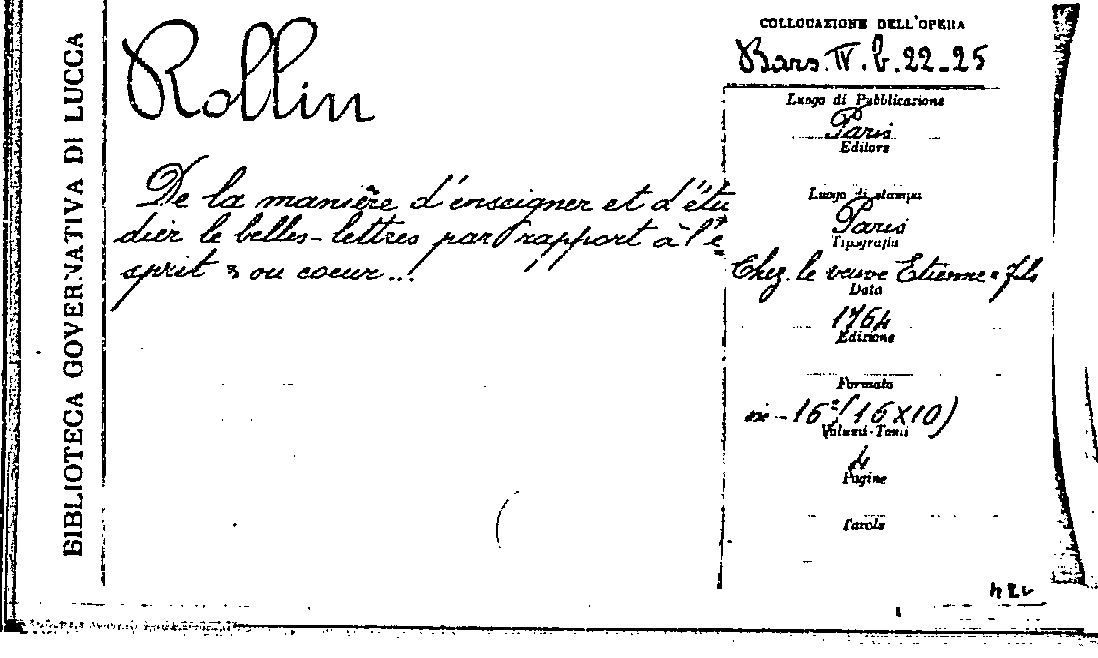 BIBLIOTECA GOVERNATIVA DI LUCCA
Rollin
De la manière d'enseigner et d'étu
dier le belles-lettres par rapport à l'e
sprit & ou coeur...
COLLOCAZIONE DELL'OPERA
Bars. IV. b. 22-25
Luogo di Pubblicazione
Paris
Editore
Luogo di stampa
Paris
Tipografia
Chez le veuve Etienne e fils
Data
1764
Edizione
Formato
in-16° (16x10)
Volumi-Tomi
4
Pagine
Tavole